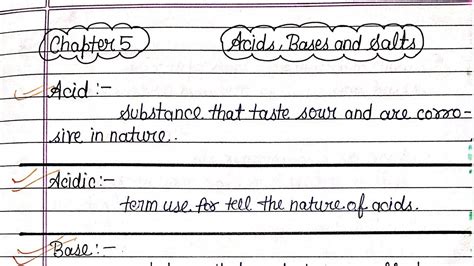 Chapter 5 Acids, Bases and Salts
Acid :-
substance that taste sour and are corro-
sive in nature.
Acidic :-
term use for tell the nature of acids.
Base :-